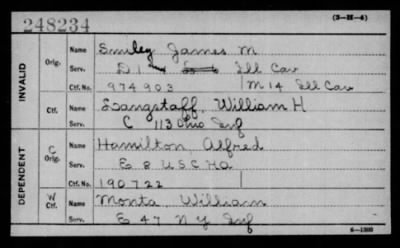 248234
(3-H-4)
INVALID
Orig.
Name Smiley James M
Serv. D 1 Ill Cav
Ctf. No. 974903 M 14 Ill Cav
Ctf.
Name Langstaff William H
Serv. C 113 Ohio Inf
DEPENDENT
C Orig.
Name Hamilton Alfred
Serv. E 8 U S C H A
Ctf. No. 190722
W Ctf.
Name Monta William
Serv. E 47 N Y Inf
6-1300